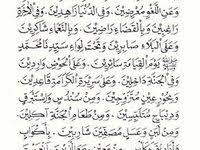 وَعَنِ اللَّغْوِ مُعْرِضِينَ وَفِي الدُّنْيَا زَاهِدِينَ وَفِي الْآخِرَةِ
رَاغِبِينَ وَبِالْقَضَاءِ رَاضِينَ وَبِالنَّعْمَاءِ شَاكِرِينَ
وَعَلَى الْبَلَاءِ صَابِرِينَ وَتَحْتَ لِوَاءِ سَيِّدِنَا مُحَمَّدٍ
يَوْمَ الْقِيَامَةِ سَائِرِينَ وَعَلَى الْحَوْضِ وَارِدِينَ
وَفِي الْجَنَّةِ دَاخِلِينَ وَعَلَى سَرِيرَةِ الْكَرَامَةِ قَاعِدِينَ
وَبِحُورٍ عِينٍ مُتَزَوِّجِينَ وَمِنْ سُنْدُسٍ وَإِسْتَبْرَقٍ
وَدِيبَاجٍ مُتَلَبِّسِينَ وَمِنْ طَعَامِ الْجَنَّةِ آكِلِينَ
وَمِنْ لَبَنٍ وَعَسَلٍ مُصَفَّيْنِ شَارِبِينَ بِأَكْوَابٍ